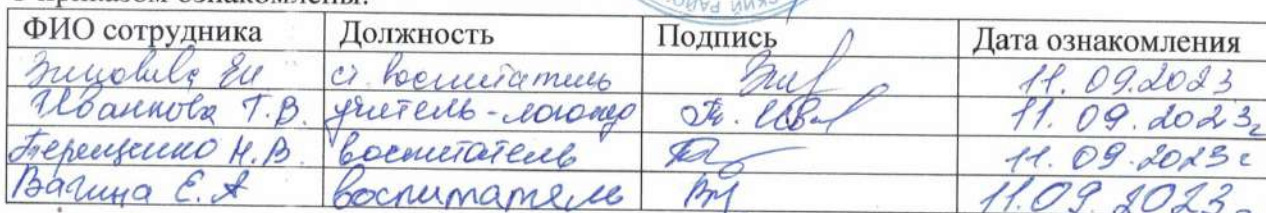 С приказом ознакомлены:
ФИО сотрудника Должность Подпись Дата ознакомления
Зиновьева ЕИ ст. воспитатель 11.09.2023
Иванкова Т.В. учитель-логопед 11.09.2023г
Терещенко Н.В. воспитатель 11.09.2023г
Вагина Е.А воспитатель 11.09.2023г